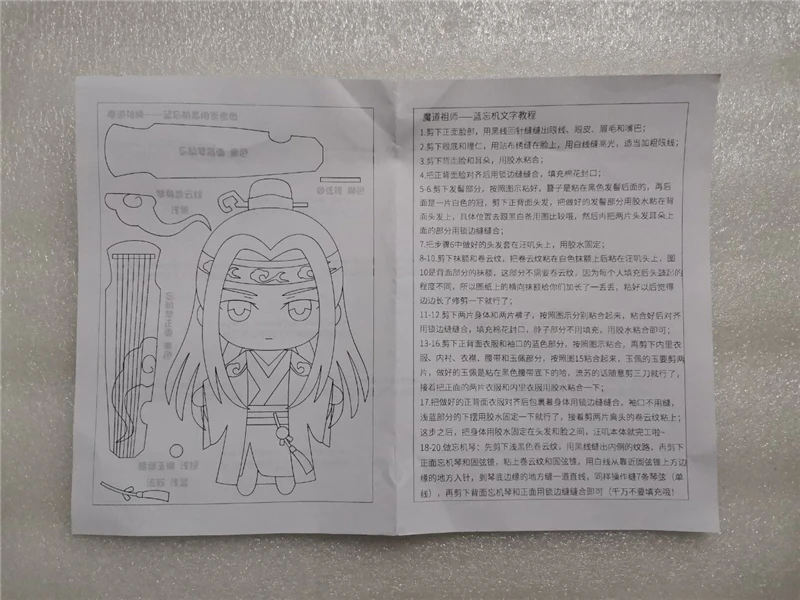 魔道祖师——蓝忘机文字教程
1.剪下正面脸部，用黑线回针缝缝出眼线、眼皮、眉毛和嘴巴；
2.剪眼底和瞳仁，用贴布绣缝在脸上，用白线缝高光，适当加粗眼线；
3.剪下背面脸和耳朵，用胶水粘合；
4.把正背面脸对齐后用锁边缝缝合，填充棉花封口；
5-6.剪下发髻部分，按照图示粘好，簪子是粘在黑色发髻后面的，再后
面是一片白色的冠，剪下正背面头发，把做好的发髻部分用胶水粘在背
面头发上，具体位置去跟黑白条用图比较哦，然后再把两片头发耳朵上
面的部分用锁边缝缝合；
7.把步骤6中做好的头发套在汪叽头上，用胶水固定；
8-10.剪下抹额和卷云纹，把卷云纹粘在白色抹额上后粘在汪叽头上，图
10是背面部分的抹额，这部分不需要卷云纹，因为每个人填充后头鼓起的
程度不同，所以图纸上的横向抹额给你们加长了一丢丢，粘好以后觉得
边边长了修剪一下就行了；
11-12.剪下两片身体和两片裤子，按照图示分别粘合起来，粘合好后对齐
用锁边缝缝合，填充棉花封口，脖子部分不用填充，用胶水粘合即可；
13-16.剪下正背面衣服和袖口的蓝色部分，按照图示粘合，再剪下内里衣
服、内衬、衣襟、腰带和玉佩部分，按照图15粘合起来，玉佩的玉要剪两
片，做好的玉佩是粘在黑色腰带底下的哈，流苏的话随意剪三刀就行了，
接着把正面的两片衣服和内里衣服用胶水粘合一下；
17.把做好的正背面衣服对齐后包裹着身体用锁边缝缝合，袖口不用缝，
浅蓝部分的下摆用胶水固定一下就行了，接着剪两片肩头的卷云纹粘上；
这步之后，把身体用胶水固定在头发和脸之间，汪叽本体就完工啦~
18-20.做忘机琴：先剪下浅黑色卷云纹，用黑线缝出内侧的纹路，再剪下
正面忘机琴和固弦锥，粘上卷云纹和固弦锥，用白线从靠近固弦锥上方边
缘的地方入针，到琴底边缘的地方缝一道直线，同样操作缝7条琴弦（单
线），再剪下背面忘机琴和正面用锁边缝缝合即可（千万不要填充哦！